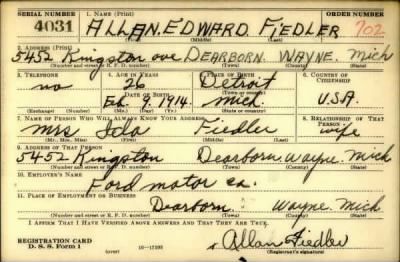 SERIAL NUMBER 1. NAME (Print) ORDER NUMBER
4031 ALLAN. EDWARD. FIEDLER 702
(First) (Middle) (Last)
2. ADDRESS (Print)
5452 Kingston ave DEARBORN. WAYNE. Mich
(Number and street or R. F. D. number) (Town) (County) (State)
3. TELEPHONE 4. AGE IN YEARS 5. PLACE OF BIRTH 6. COUNTRY OF CITIZENSHIP
no 26 Detroit
DATE OF BIRTH (Town or county)
Feb. 9. 1914. Mich. U.S.A.
(Exchange) (Number) (Mo.) (Day) (Yr.) (State or country)
7. NAME OF PERSON WHO WILL ALWAYS KNOW YOUR ADDRESS 8. RELATIONSHIP OF THAT PERSON
Mrs Ida Fiedler wife
(Mr., Mrs., Miss) (First) (Middle) (Last)
9. ADDRESS OF THAT PERSON
5452 Kingston Dearborn Wayne. Mich
(Number and street or R. F. D. number) (Town) (County) (State)
10. EMPLOYER'S NAME
Ford motor co.
11. PLACE OF EMPLOYMENT OR BUSINESS
Dearborn. Wayne. Mich
(Number and street or R. F. D. number) (Town) (County) (State)
I AFFIRM THAT I HAVE VERIFIED ABOVE ANSWERS AND THAT THEY ARE TRUE.
REGISTRATION CARD
D. S. S. Form 1 (over) 16—17105 Allan Fiedler